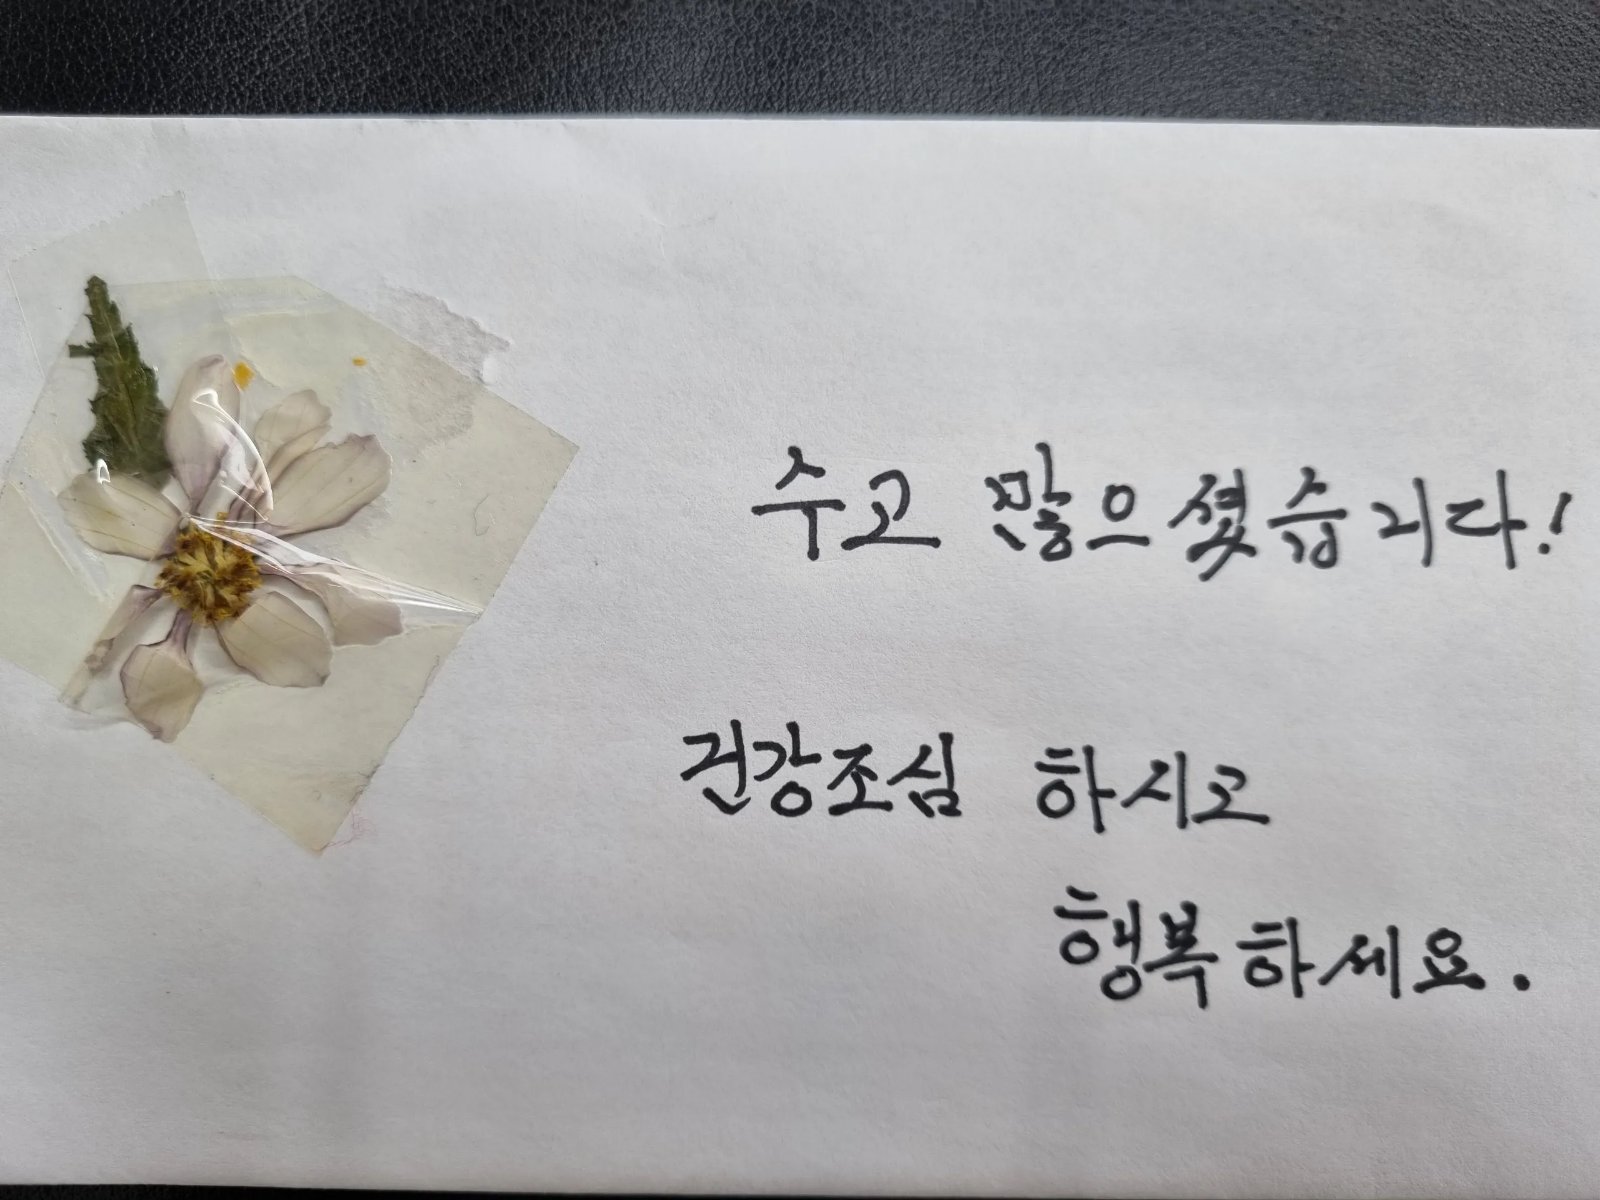 수고 많으셨습니다!
건강조심 하시고
행복하세요.